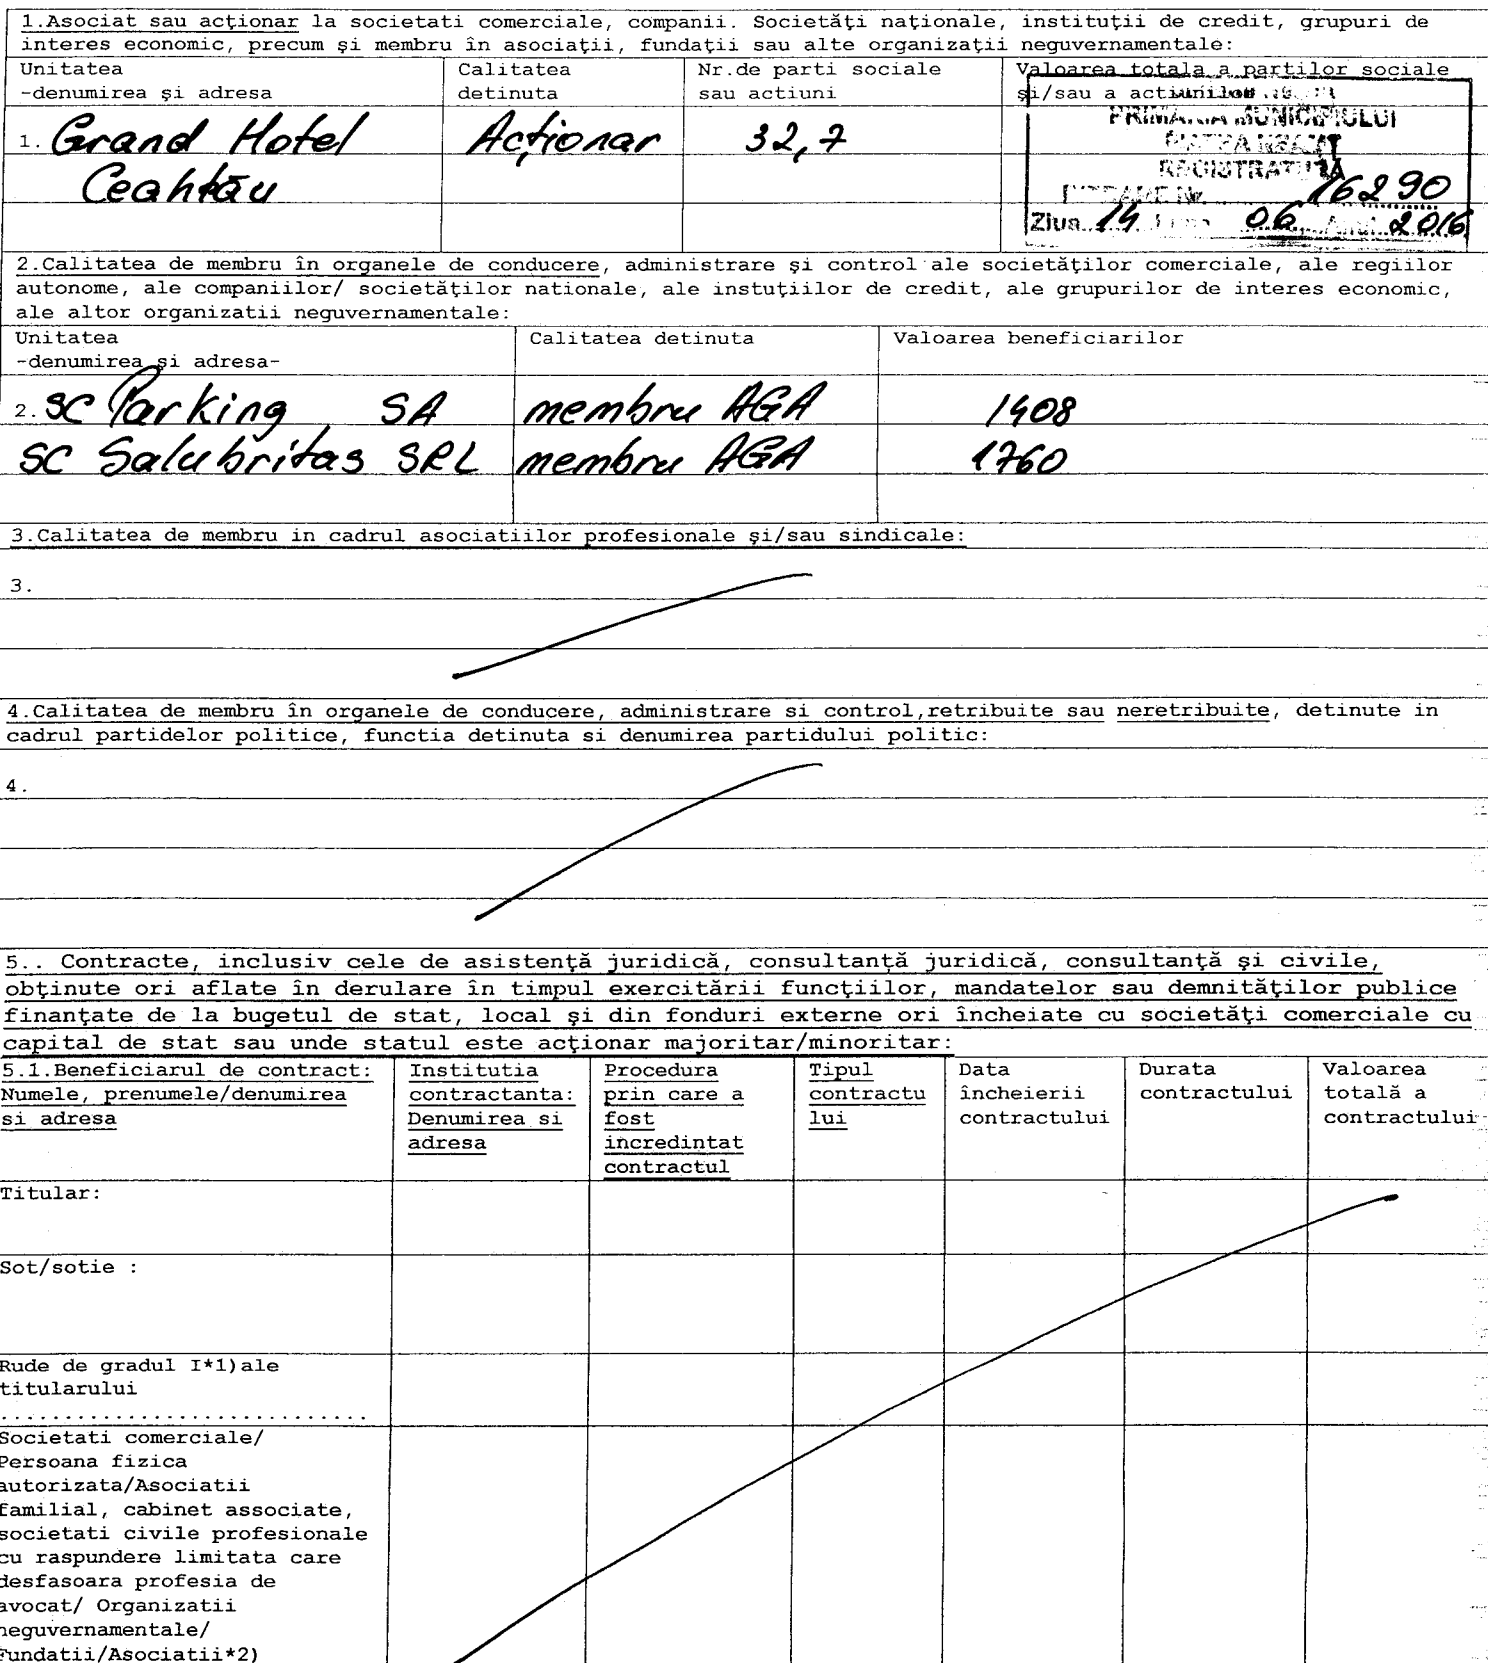 1.Asociat sau acţionar la societati comerciale, companii. Societăţi naţionale, instituţii de credit, grupuri de
interes economic, precum şi membru în asociaţii, fundaţii sau alte organizaţii neguvernamentale:
Unitatea
-denumirea şi adresa
Calitatea
detinuta
Nr.de parti sociale
sau actiuni
Valoarea totala a partilor sociale
şi/sau a actiunilor
1. Grand Hotel
Ceahlău
Acţionar
32,7
PRIMARIA MUNICIPIULUI
PIATRA NEAMT
REGISTRATURĂ
INTRARE Nr. 16290
Ziua 14 Luna 06 Anul 2016
2.Calitatea de membru în organele de conducere, administrare şi control ale societăţilor comerciale, ale regiilor
autonome, ale companiilor/ societăţilor nationale, ale instuţiilor de credit, ale grupurilor de interes economic,
ale altor organizatii neguvernamentale:
Unitatea
-denumirea şi adresa-
Calitatea detinuta
Valoarea beneficiarilor
2. SC Parking SA
membru AGA
1408
SC Salubritas SRL
membru AGA
1760
3.Calitatea de membru in cadrul asociatiilor profesionale şi/sau sindicale:
3.
4.Calitatea de membru în organele de conducere, administrare si control,retribuite sau neretribuite, detinute in
cadrul partidelor politice, functia detinuta si denumirea partidului politic:
4.
5.. Contracte, inclusiv cele de asistenţă juridică, consultanţă juridică, consultanţă şi civile,
obţinute ori aflate în derulare în timpul exercitării funcţiilor, mandatelor sau demnităţilor publice
finanţate de la bugetul de stat, local şi din fonduri externe ori încheiate cu societăţi comerciale cu
capital de stat sau unde statul este acţionar majoritar/minoritar:
5.1.Beneficiarul de contract:
Numele, prenumele/denumirea
si adresa
Institutia
contractanta:
Denumirea si
adresa
Procedura
prin care a
fost
incredintat
contractul
Tipul
contractu
lui
Data
încheierii
contractului
Durata
contractului
Valoarea
totală a
contractului
Titular:
Sot/sotie :
Rude de gradul I*1)ale
titularului
............................
Societati comerciale/
Persoana fizica
autorizata/Asociatii
familial, cabinet associate,
societati civile profesionale
cu raspundere limitata care
desfasoara profesia de
avocat/ Organizatii
neguvernamentale/
Fundatii/Asociatii*2)